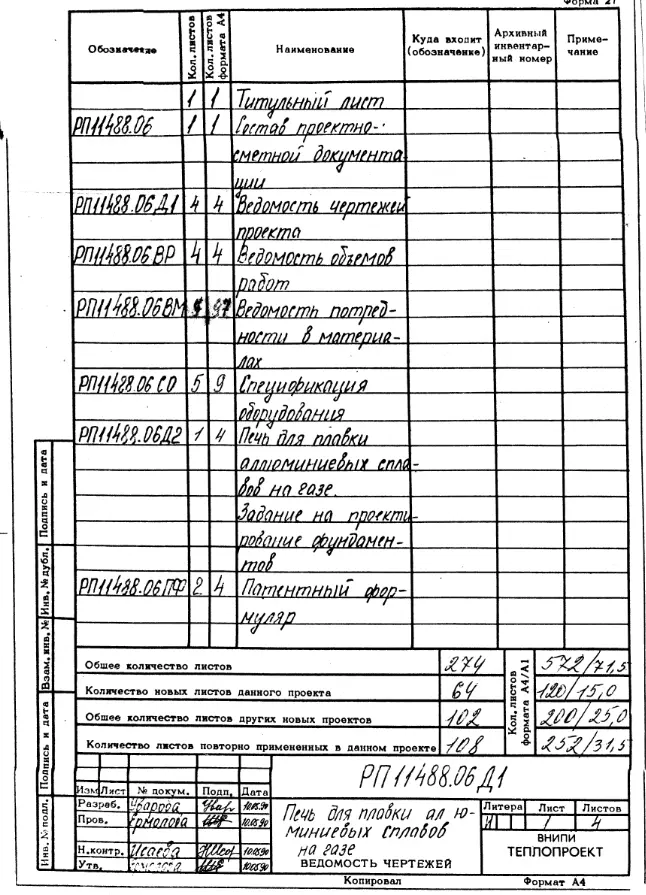 Форма 21
Обозначение Кол. листов Кол. листов формата А4 Наименование Куда входит (обозначение) Архивный инвентарный номер Примечание
1 1 Титульный лист
РП11488.06 1 1 Состав проектно-
сметной документа
ции
РП11488.06Д1 4 4 Ведомость чертежей
проекта
РП11488.06ВР 4 4 Ведомость объемов
работ
РП11488.06ВМ Ведомость потреб-
ности в материа-
лах
РП11488.06СО 5 9 Спецификация
оборудования
РП11488.06Д2 1 4 Печь для плавки
аллюминиевых спла-
вов на газе.
Задание на проекти
рование фундамен-
тов
РП11488.06ПФ 2 4 Патентный фор-
муляр
Общее количество листов 274 572/71,5
Количество новых листов данного проекта 64 120/15,0
Общее количество листов других новых проектов 102 200/25,0
Количество листов повторно примененных в данном проекте 108 252/31,5
Кол. листов формата А4/А1
Подпись и дата
Инв. № дубл.
Взам. инв. №
Подпись и дата
Инв. № подл.
РП11488.06Д1
Изм Лист № докум. Подп. Дата
Разраб. Уварова 10.05.90
Пров. Ермолова 10.05.90
Н.контр. Исаева 10.05.90
Утв. 10.05.90
Печь для плавки ал ю-
миниевых сплавов
на газе
ВЕДОМОСТЬ ЧЕРТЕЖЕЙ
Литера Лист Листов
И 1 4
ВНИПИ
ТЕПЛОПРОЕКТ
Копировал Формат А4